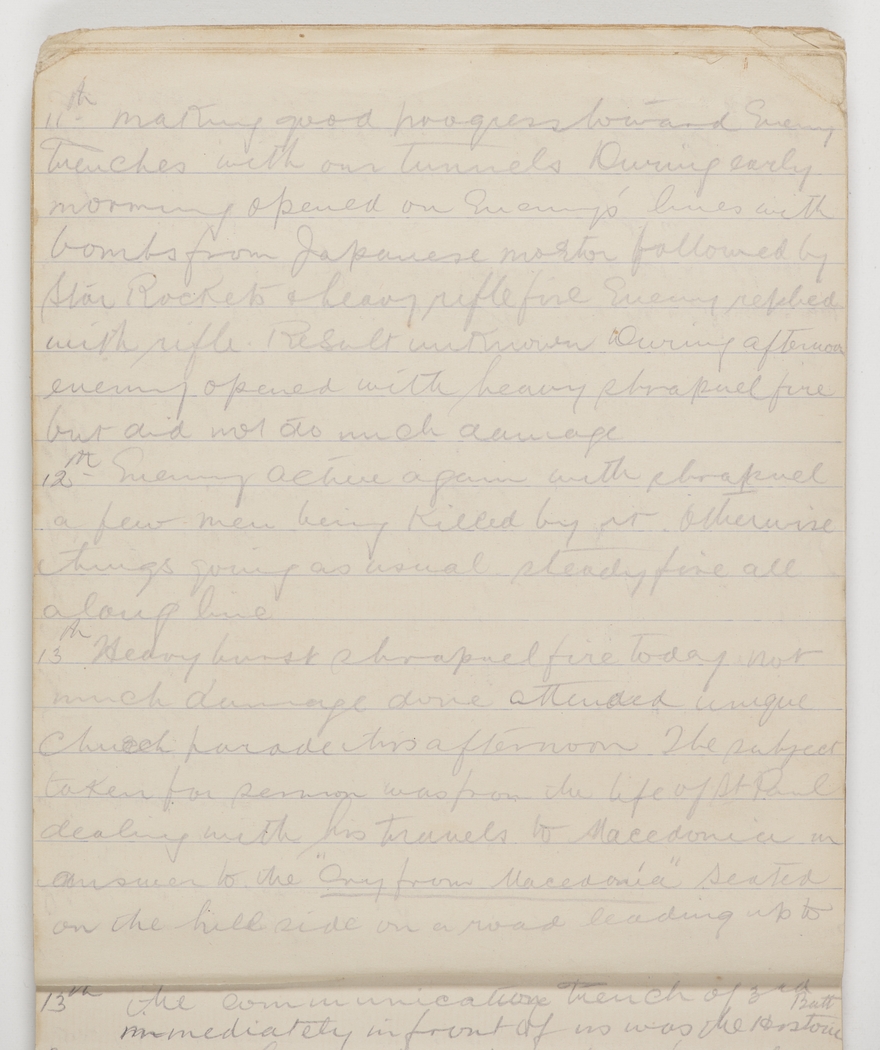 11th making good progress toward Enemy
trenches with our tunnels During early
morning opened on Enemys' lines with
bombs from Japanese mortor followed by
Star Rockets & heavy rifle fire Enemy replied
with rifle. Result unknown During afternoon
enemy opened with heavy shrapnel fire
but did not do much damage
12th Enemy active again with shrapnel
a few men being Killed by it. Otherwise
things going as usual steady fire all
along line
13th Heavy burst shrapnel fire today not
much damage done attended unique
Church parade this afternoon The subject
taken for sermon was from the life of St Paul
dealing with his travels to Macedonia in
answer to the "Cry from Macedonia" Seated
on the hill side on a road leading up to
13th the communication trench of 3rd Batt
immediately in front of us was the